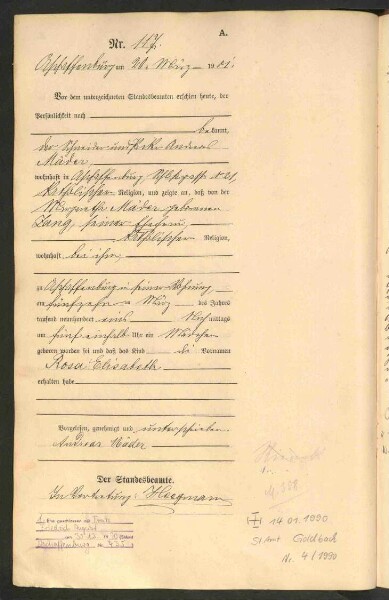 A.
Nr. 117.
Aschaffenburg am 20. März 1901.
Vor dem unterzeichneten Standesbeamten erschien heute, der
Persönlichkeit nach
bekannt,
der Schneider Andreas
Mäder
wohnhaft in Aschaffenburg
katholischer Religion, und zeigte an, daß von der
Margaretha Mäder geborenen
Zang, seiner Ehefrau,
katholischer Religion,
wohnhaft bei ihm
zu Aschaffenburg in seiner Wohnung
am fünfzehnten März des Jahres
tausend neunhundert eins Nachmittags
um fünf einhalb Uhr ein Mädchen
geboren worden sei und daß das Kind die Vornamen
Rosa Elisabeth
erhalten habe
Vorgelesen, genehmigt und unterschrieben
Andreas Mäder
Der Standesbeamte.
In Vertretung:
Aschaffenburg
14.01.1990
StAmt Goldbach
Nr. 4/1990